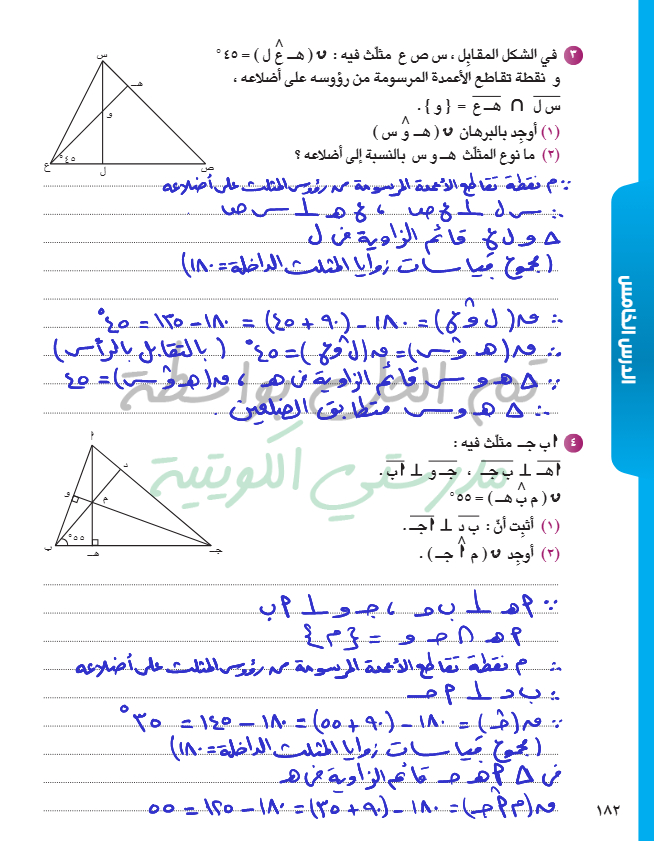 ٣ في الشكل المقابِل ، س ص ع مثلّث فيه : ن ( هـ ع ل ) = ٤٥°
و نقطة تقاطع الأعمدة المرسومة من رؤوسه على أضلاعه ،
س ل ∩ هـ ع = { و } .
(١) أوجد بالبرهان ن ( هـ و س )
(٢) ما نوع المثلّث هـ و س بالنسبة إلى أضلاعه ؟
س
هـ
و
٤٥°
ع
ل
ص
∵ م نقطة تقاطع الأعمدة المرسومة من رؤوس المثلث على أضلاعه
∴ س ل ⊥ ع ص ، ع هـ ⊥ س ص
Δ و ل ع قائم الزاوية في ل
( مجموع قياسات زوايا المثلث الداخلة = ١٨٠)
∴ ن( ل و ع) = ١٨٠ − (٩٠ + ٤٥) = ١٨٠ − ١٣٥ = ٤٥°
∴ ن( هـ و س) = ن( ل و ع) = ٤٥° ( بالتقابل بالرأس)
∵ Δ هـ و س قائم الزاوية في هـ ، ن( هـ و س) = ٤٥
∴ Δ هـ و س متطابق الضلعين .
قم الطرح بواسطة
مدرستي الكويتية
الدرس الخامس
٤ أ ب جـ مثلّث فيه :
أ هـ ⊥ ب جـ ، جـ و ⊥ أ ب .
ن ( م ب هـ ) = ٥٥°
(١) أثبِت أنّ : ب د ⊥ أ جـ .
(٢) أوجد ن ( م أ جـ ) .
أ
د
و
م
٥٥°
ب
هـ
جـ
∵ أ هـ ⊥ ب جـ ، جـ و ⊥ أ ب
أ هـ ∩ جـ و = {م}
∴ م نقطة تقاطع الأعمدة المرسومة من رؤوس المثلث على أضلاعه
∴ ب د ⊥ أ جـ
∵ ن( جـ) = ١٨٠ − (٩٠ + ٥٥) = ١٨٠ − ١٤٥ = ٣٥°
( مجموع قياسات زوايا المثلث الداخلة = ١٨٠)
في Δ أ هـ جـ قائم الزاوية في هـ
ن( م أ جـ) = ١٨٠ − (٩٠ + ٣٥) = ١٨٠ − ١٢٥ = ٥٥
١٨٢